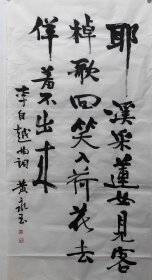 耶溪采蓮女見客
棹歌回笑入荷花去
佯羞不出来
李白越女词 黄永玉